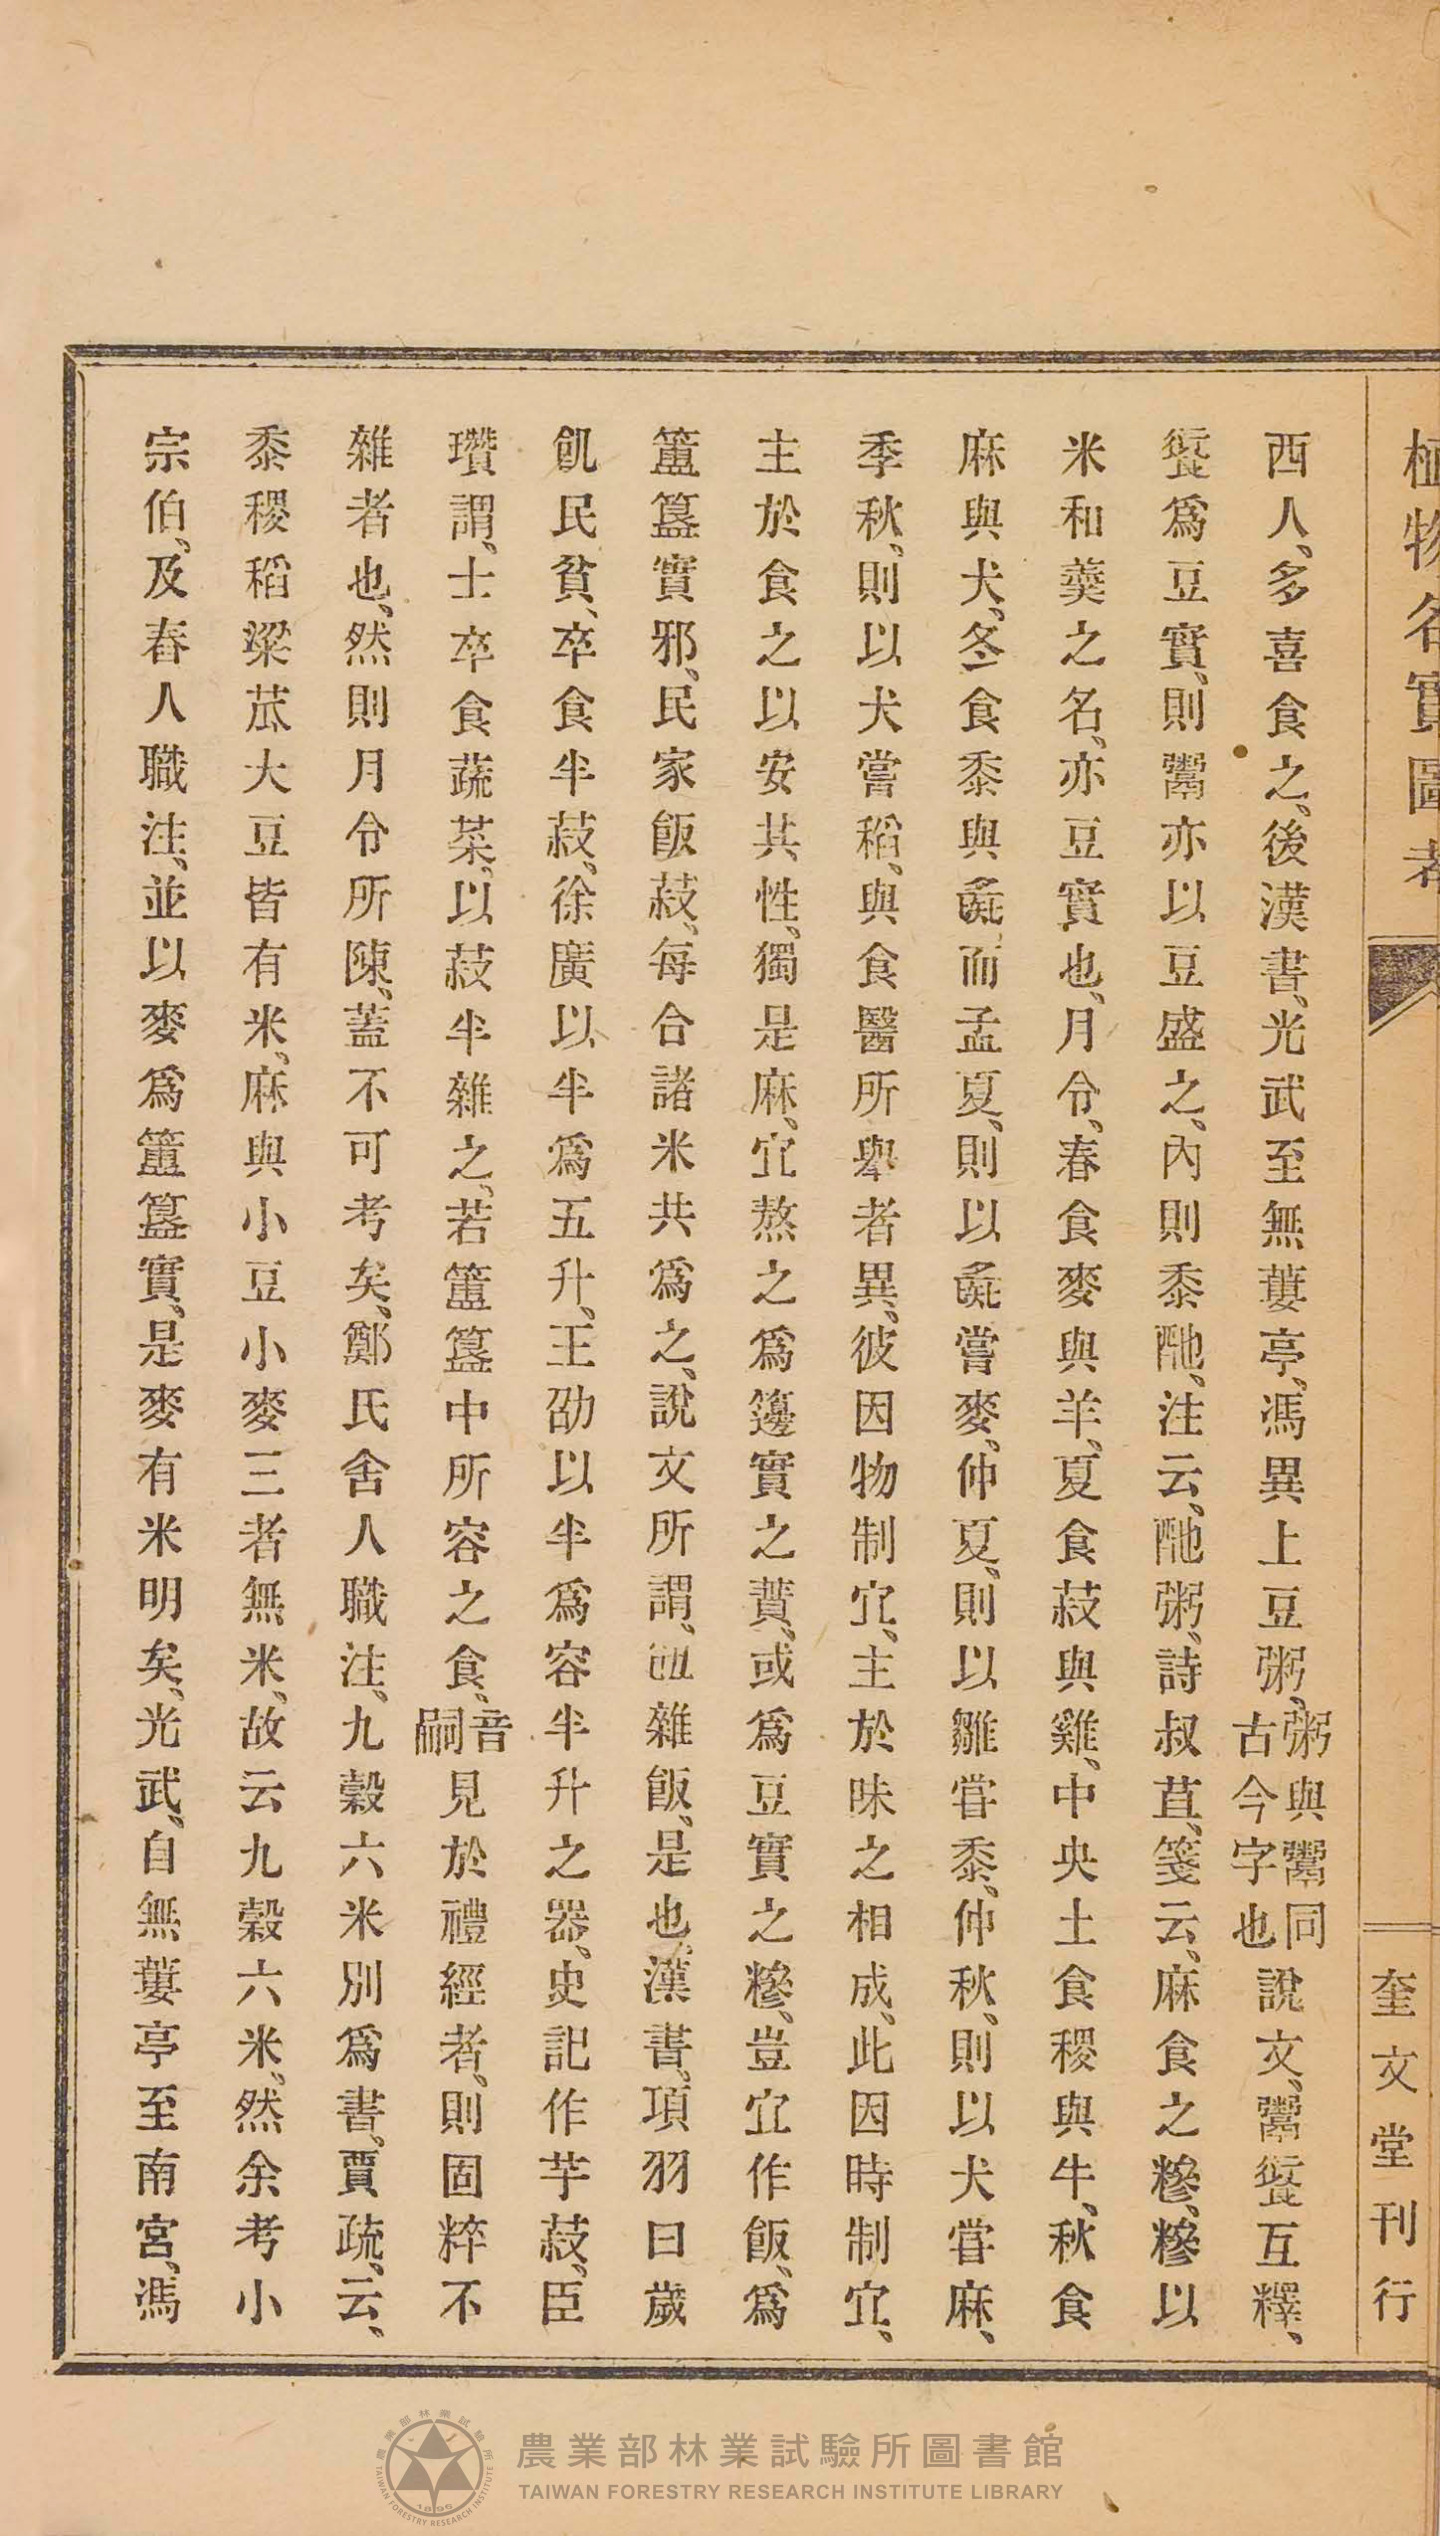 植物名實圖考
奎文堂刊行
西人、多喜食之、後漢書、光武至無蔞亭、馮異上豆粥、粥與鬻同古今字也說文、鬻䭈互釋、
䭈爲豆實、則鬻亦以豆盛之、內則黍酏、注云、酏粥、詩叔苴、箋云、麻食之糝、糝以
米和羹之名、亦豆實也、月令、春食麥與羊、夏食菽與雞、中央土食稷與牛、秋食
麻與犬、冬食黍與彘、而孟夏、則以彘嘗麥、仲夏、則以雛嘗黍、仲秋、則以犬嘗麻、
季秋、則以犬嘗稻、與食醫所舉者異、彼因物制宜、主於味之相成、此因時制宜、
主於食之以安其性、獨是麻、宜熬之爲籩實之蕡、或爲豆實之糝、豈宜作飯、爲
簠簋實邪、民家飯菽、每合諸米共爲之、說文所謂、䬼雜飯、是也、漢書、項羽曰歲
飢民貧、卒食半菽、徐廣以半爲五升、王劭以半爲容半升之器、史記作芋菽、臣
瓚謂、士卒食蔬菜、以菽半雜之、若簠簋中所容之食、音嗣見於禮經者、則固粹不
雜者也、然則月令所陳、蓋不可考矣、鄭氏舍人職注、九穀六米別爲書、賈疏、云、
黍稷稻粱苽大豆皆有米、麻與小豆小麥三者無米、故云九穀六米、然余考小
宗伯、及舂人職注、並以麥爲簠簋實、是麥有米明矣、光武、自無蔞亭至南宮、馮
農業部林業試驗所圖書館
TAIWAN FORESTRY RESEARCH INSTITUTE LIBRARY